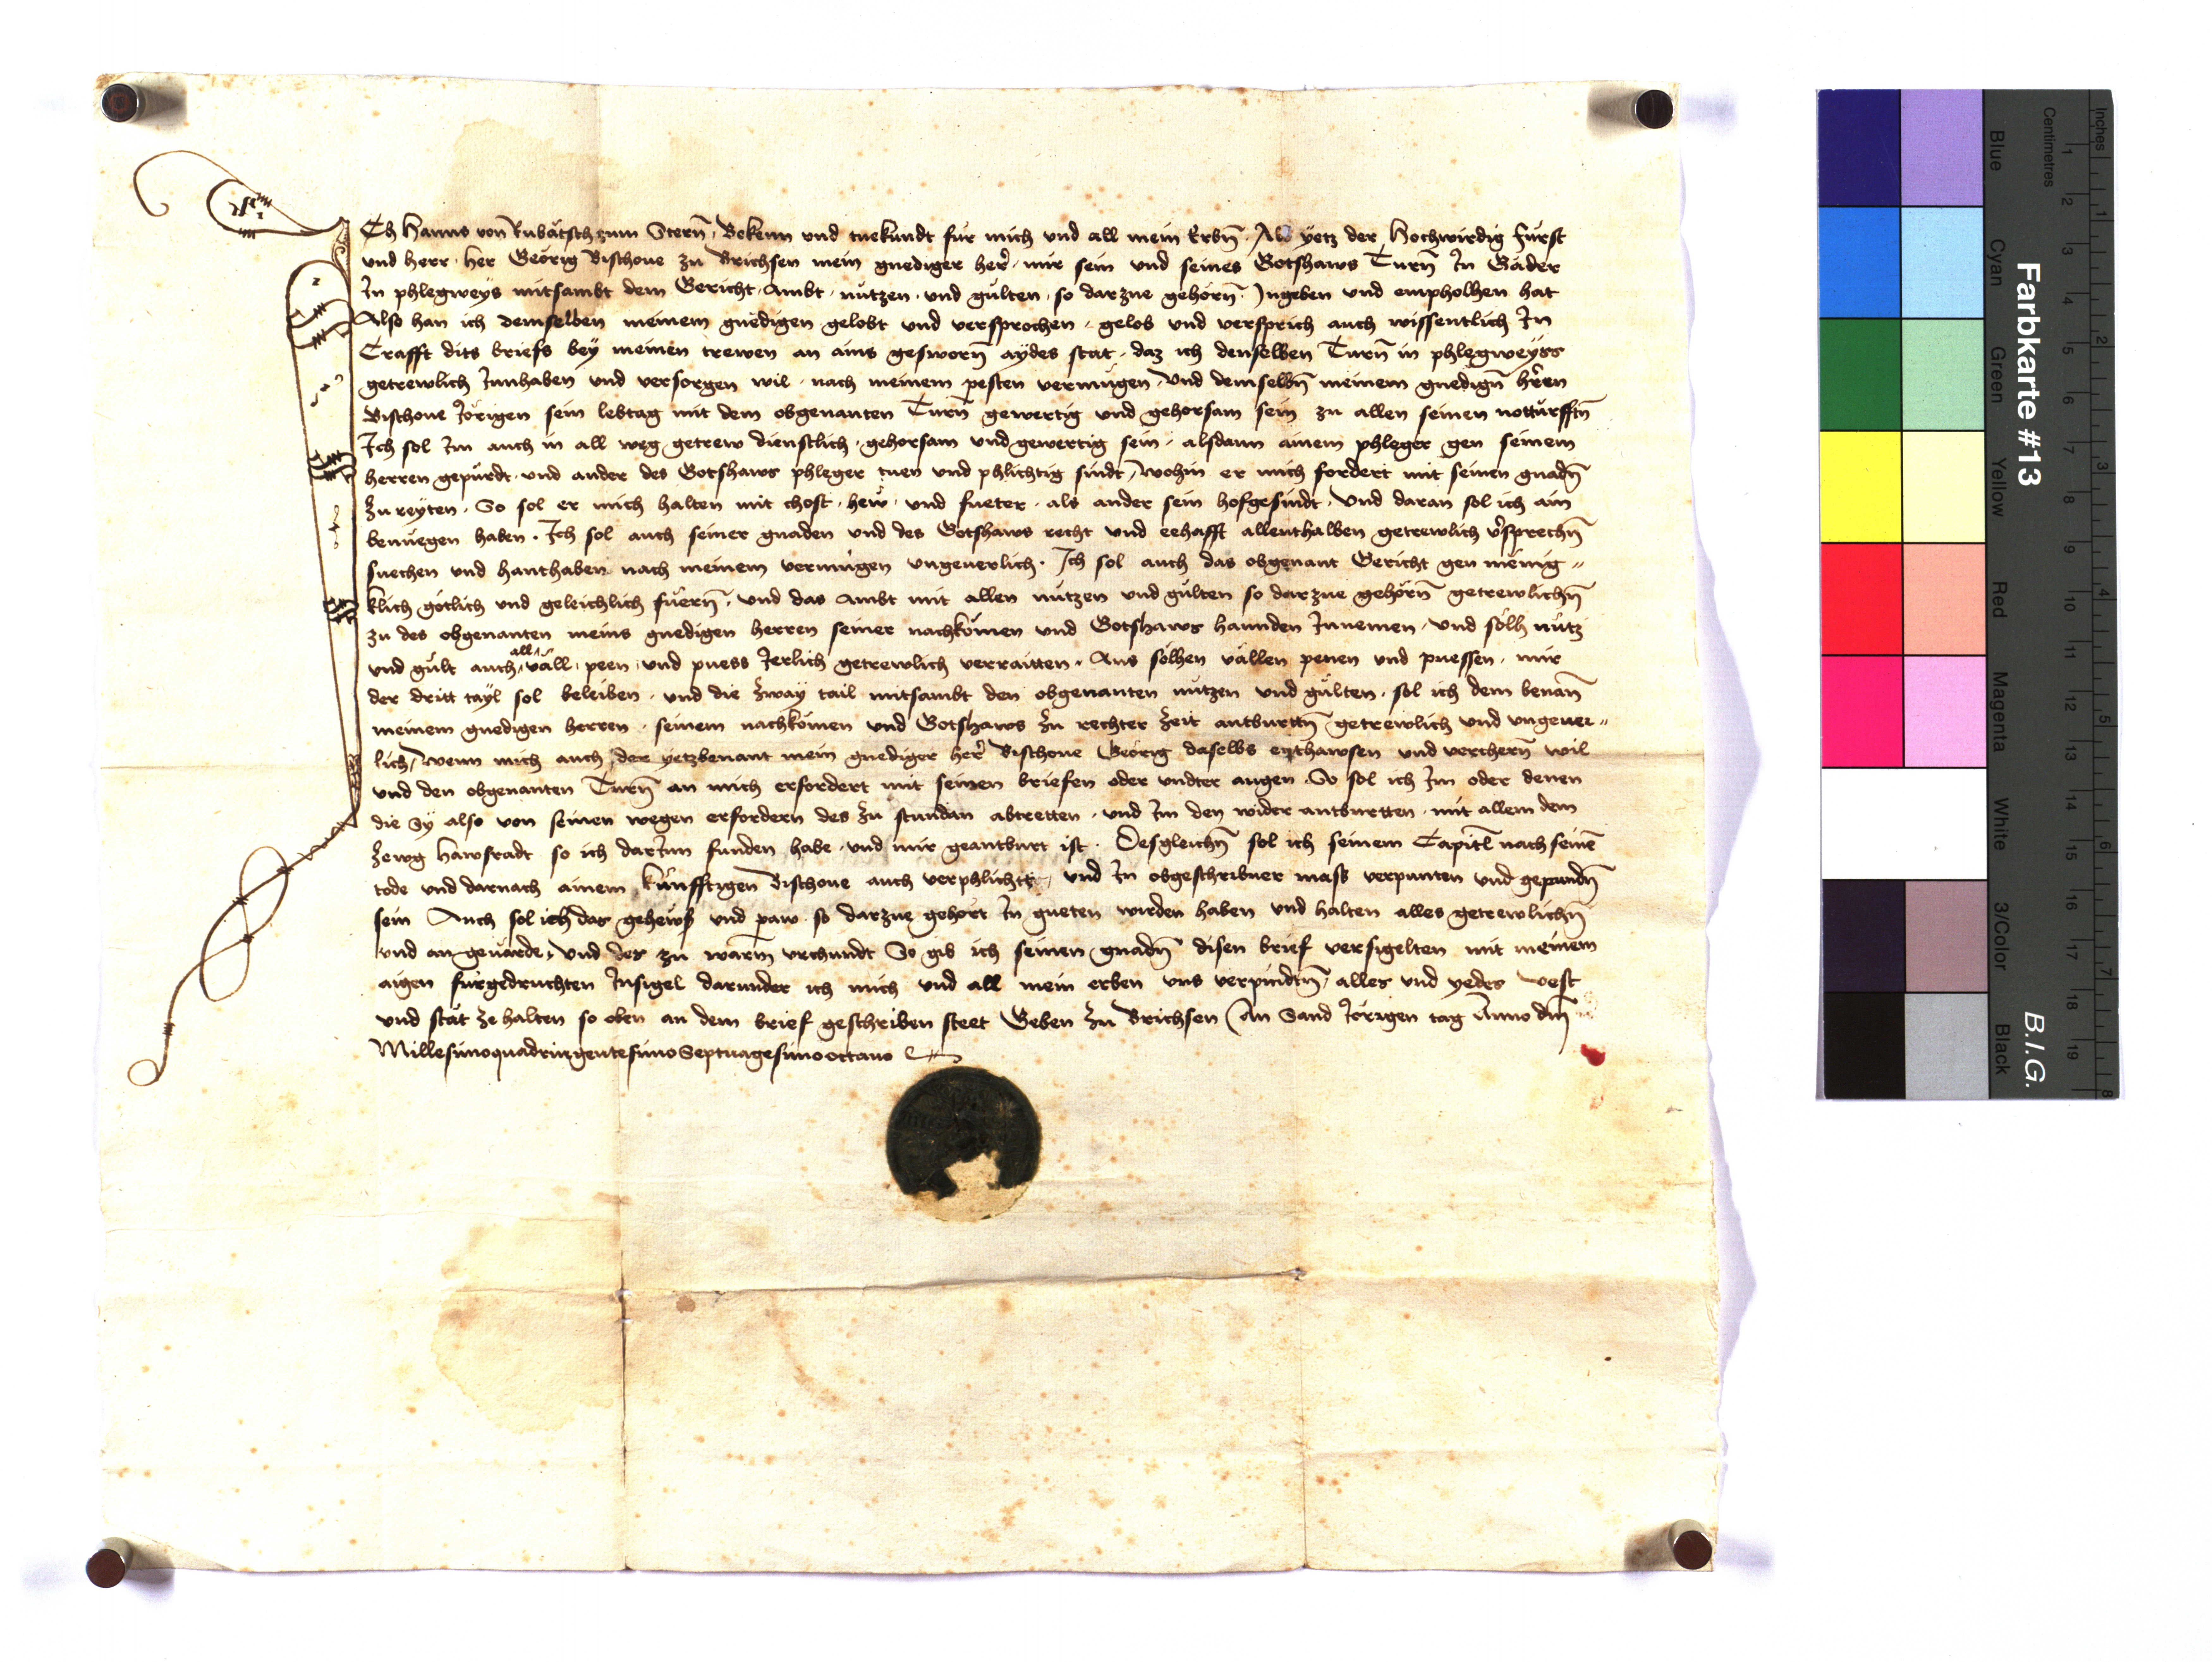 ICh Hanns von Rubatsch zum Stern̄ Bekenn und tuekundt fur mich vnd all mein Erbn̄ Als yetz der Hochwirdig fürst
vnd herr her Georig Bischoue zu Brichsen mein gnediger her mir sein vnd seines Gotshaws Turn̄ In Gäder
In phlegweys mitsambt dem Gericht Ambt nützen vnd gülten so darzue gehörn̄ Ingeben vnd empholhen hat
Also han ich demselben meinem gnedigen gelobt vnd versprochen gelob vnd versprich auch wissentlich In
Crafft dits briefs bey meinen trewen an ains gesworn̄ aydes stat daz ich denselben Turn̄ in phlegweyss
getrewlich Innhaben vnd versorgen wil nach meinem pesten vermügen Vnd demselbn̄ meinem gnedign̄ hren
Bischoue Jörigen sein lebtag mit dem obgenanten Turn̄ gewertig vnd gehorsam sein zu allen seinen notturfftn̄
Ich sol Im auch in all weg getrew dienstlich gehorsam vnd gewertig sein alsdann ainem phleger gen seinem
herren gepürdt vnd ander des Gotshaws phleger tuen vnd phlichtig sindt wohin er mich fordert mit seinen gnadn̄
zu reyten So sol er mich halten mit chost hew vnd fueter als ander sein hofgesindt Vnd daran sol ich ain
benuegen haben Ich sol auch seiner gnaden vnd des Gotshaws recht vnd eehafft allenthalben getrewlich vsprechn̄
suechen vnd hanthaben nach meinem vermügen vngeuerlich Ich sol auch das obgenant Gericht gen menig„
klich götlich vnd geleichlich füern̄ vnd das ambt mit allen nützen vnd gülten so darzue gehörn̄ getrewlichn̄
zu des obgenanten meins gnedigen herren seiner nachkömen vnd Gotshaws hannden Innemen vnd sölh nütz
vnd gült auch all väll peen vnd puess Jerlich getrewlich verraitten Aus sölhen vällen penen vnd puessen mir
der dritt tayl sol beleiben vnd die zway tail mitsambt den obgenanten nützen vnd gülten sol ich dem benan̄
meinem gnedigen herren seinem nachkömen vnd Gotshaws zu rechter zeit antburttn̄ getrewlich vnd vngeuer„
lich Wenn mich auch der yetzbenant mein gnediger her Bischoue Georig daselbs enthawsen vnd verchern̄ wil
vnd den obgenanten Turn̄ an mich erfordert mit seinen briefen oder vndter augen So sol ich Im oder denen
die Sy also von seinen wegen erfordern des zu stundan abtretten vnd Im den wider antburtten mit allem dem
zewg hawsradt so ich darInn funden habe vnd mir geantburt ist Desgleichn̄ sol ich seinem Capitl̄ nach seinē
tode vnd darnach ainem künfftigen Bischoue auch verphlicht vnd In obgeschribner mass verpunten vnd gepundn̄
sein Auch sol ich das gehewß vnd paw so darzue gehört In gueten wirden haben vnd halten alles getrewlichn̄
vnd an geuärde Vnd des zu warm̄ vrchundt So gib ich seinen gnadn̄ disen brief versigelten mit meinem
aigen fürgedruchten Insigel darunder ich mich vnd all mein erben vns verpindtn̄ alles vnd yedes vest
vnd stät ze halten so oben an dem brief geschriben steet Geben zu Brichsen An Sand Jörigen tag Anno dm̄
Millesimoquadringentesimo Septuagesimooctauo
Farbkarte #13
B.I.G.
Inches
1 2 3 4 5 6 7 8
Centimetres
1 2 3 4 5 6 7 8 9 10 11 12 13 14 15 16 17 18 19
Blue Cyan Green Yellow Red Magenta White 3/Color Black